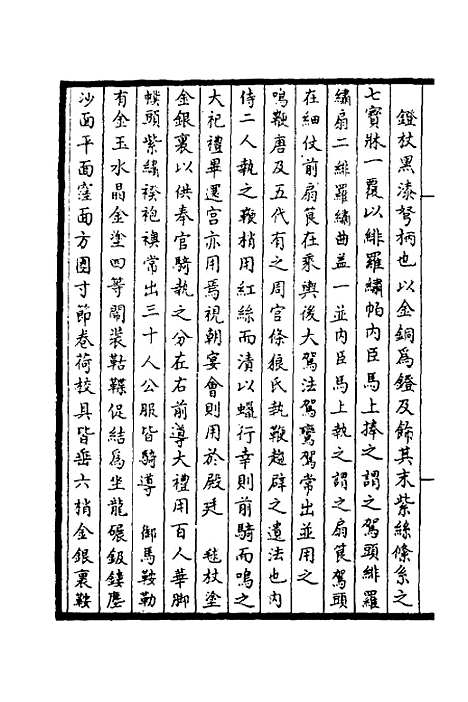 鐙杖黑漆弩柄也以金銅爲鐙及飾其末紫絲絛系之
七寳牀一覆以緋羅繡帕内臣馬上捧之謂之駕頭緋羅
繡扇二緋羅繡曲盖一並内臣馬上執之謂之扇筤駕頭
在細仗前扇筤在乘輿後大駕法駕鸞駕常出並用之
鳴鞭唐及五代有之周官條狼氏執鞭趨辟之遺法也内
侍二人執之鞭梢用紅絲而漬以蠟行幸則前騎而鳴之
大祀禮畢還宫亦用焉視朝宴會則用於殿廷 毬杖塗
金銀裹以供奉官騎執之分在右前導大禮用百人華脚
幞頭紫繡褾袍襖常出三十人公服皆騎導 御馬鞍勒
有金玉水晶金塗四等閙裝䩞鞢促結爲坐龍碾鈒鏤塵
沙面平面窪面方圓寸節卷荷校具皆垂六梢金銀裹鞍